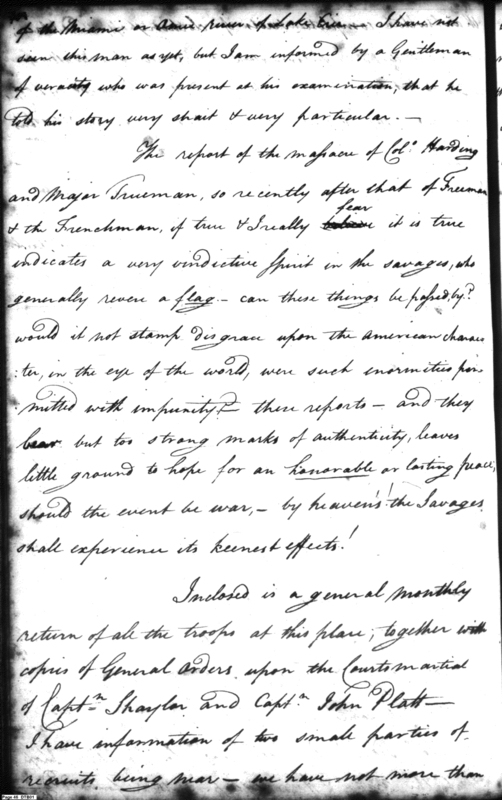 of the Miami or Omie river of Lake Erie — I have not
seen this man as yet, but I am informed by a Gentleman
of veracity who was present at his examination, that he
told his story very strait & very particular. —
The report of the massacre of Colo. Harding
and Major Trueman, so recently after that of Freeman
fear
& the Frenchman, if true & I really believe it is true
indicates a very vindictive spirit in the savages, who
generally revere a flag — can these things be passed by?
would it not stamp disgrace upon the American charac
:ter, in the eye of the world, were such enormities per
mitted with impunity? — these reports — and they
bear but too strong marks of authenticity, leaves
little ground to hope for an honorable or lasting peace,
should the event be war, — by heaven's! the Savages
shall experience its keenest effects!
Inclosed is a general monthly
return of all the troops at this place, together with
copies of General orders upon the Courts martial
of Captn. Shaylor and Captn. John Platt —
I have information of two small parties of
recruits being near — we have not more than